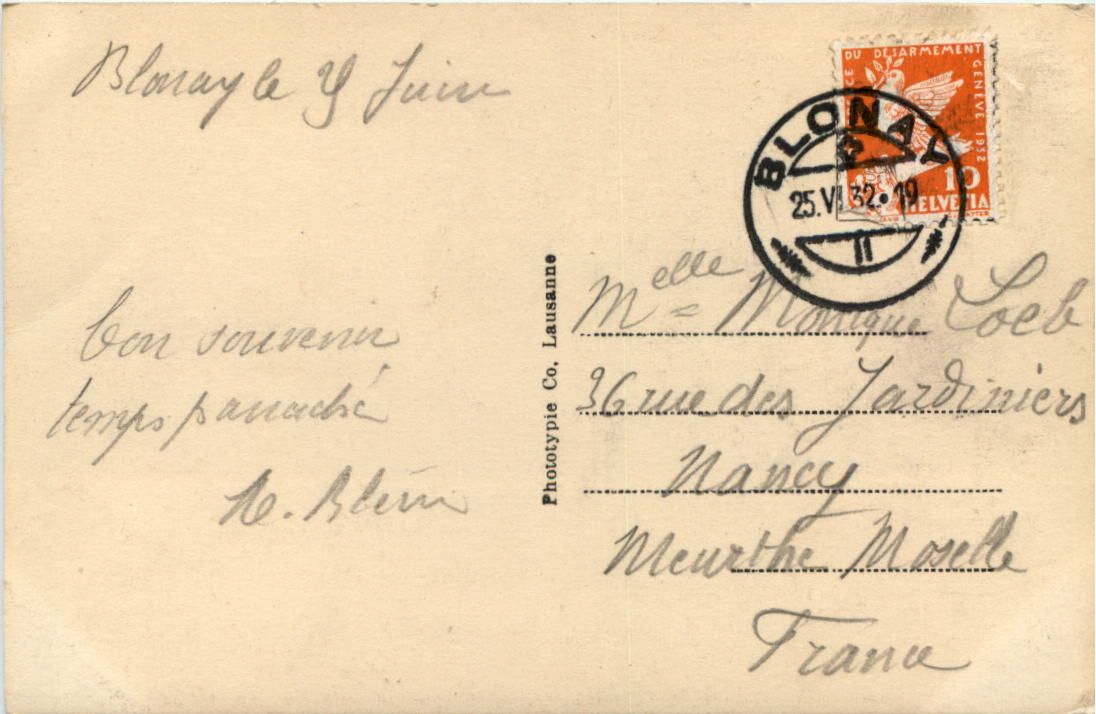 Blonay le 25 Juin
bon souvenir
temps panaché
Phototypie Co, Lausanne
CE DU DÉSARMEMENT GENÈVE 1932
10
HELVETIA
BLONAY
25.VI.32•19
Melle Monique Loeb
36 rue des Jardiniers
Nancy
Meurthe Moselle
France